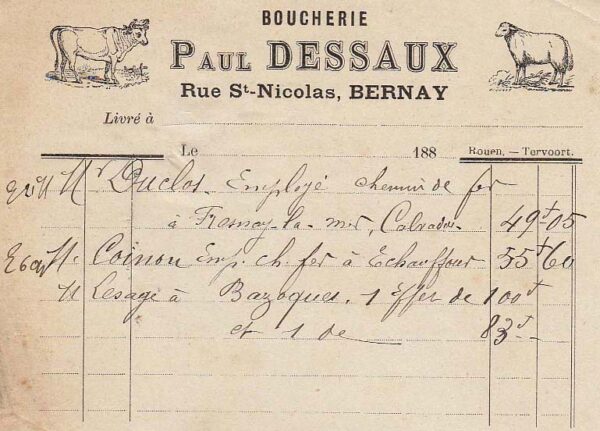 BOUCHERIE
PAUL DESSAUX
Rue St-Nicolas, BERNAY
Livré à
Le 188
Rouen. — Tervoort.
Mr Duclos Employé chemin de fer
à Fresnay-la-mer, Calvados 49 05
M. Coinou Emp. ch. fer à Echauffour 55 60
M Lesage à Bazoques, 1 Effet de 100f
et 1 de 83